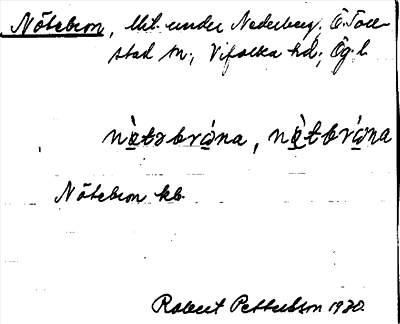 Nötebron, lht. under Nederberg, Ö. Toll-
stad sn; Vifolka hd; Ög. l.
nø̀təbrὼna, nø̀tbrὼna
Nötebron kb.
Robert Pettersson 1930.